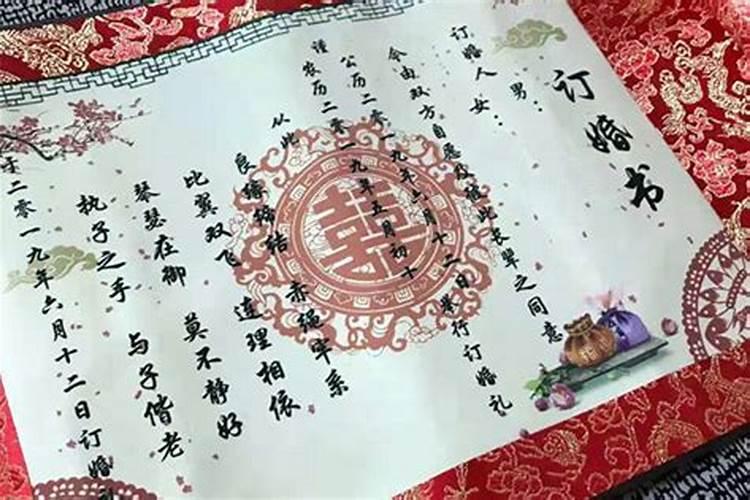 订婚书
订婚人 男:
女:
今由双方自愿及征此长辈之同意
公历二零一九年六月十二日举行订婚礼
谨农历二零一九年五月初十
从此 赤绳牢系
良缘缔结 连理相依
比翼双飞 莫不静好
琴瑟在御 与子偕老
执子之手
于二零一九年六月十二日订婚